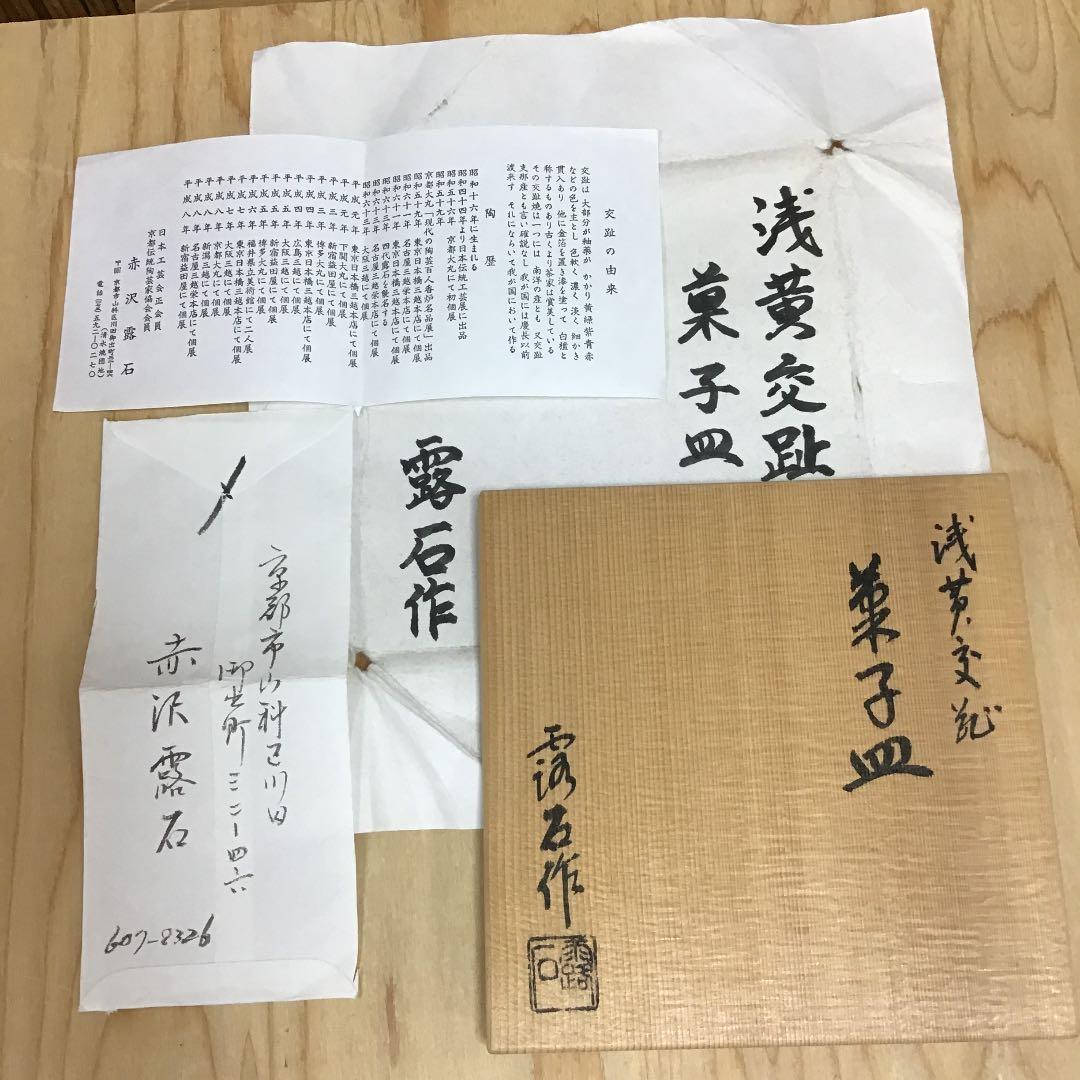 交趾の由来
交趾は、大部分が釉薬が、かかり黄緑紫青赤
などの色を主とし、色軟く、濃く、淡く、細かき
貫入あり、他に金箔を置き漆を塗って、白檀と
称するものあり古くより茶家は賞美している
その交趾焼は一つには、南洋の産とも、又交趾
支那産とも言い確説なし、我が国には慶長以前
渡来す、それにならいて我が国において作る
陶歴
昭和十六年に生まれる
昭和四十四年より日本伝統工芸展に出品
昭和五十六年 京都大丸にて初個展
昭和五十九年
京都大丸「現代の陶芸百人香炉名品展」出品
昭和五十九年 東京日本橋三越本店にて個展
昭和六十一年 名古屋三越栄本店にて個展
昭和六十一年 東京日本橋三越本店にて個展
昭和六十三年 四代露石を襲名する
昭和六十三年 名古屋三越栄本店にて個展
大阪三越にて個展
平成元年 東京日本橋三越本店にて個展
平成元年 下関大丸にて個展
平成三年 新宿益田屋にて個展
平成三年 博多大丸にて個展
平成四年 東京日本橋三越本店にて個展
平成四年 広島三越にて個展
平成五年 新宿益田屋にて個展
平成五年 大阪三越にて個展
平成五年 博多大丸にて個展
平成六年 福井県立美術館にて二人展
平成七年 東京日本橋三越本店にて個展
平成七年 大阪三越にて個展
平成八年 京都大丸にて個展
平成八年 新潟三越にて個展
平成八年 名古屋三越栄本店にて個展
平成八年 新宿益田屋にて個展
日本工芸会正会員
京都伝統陶芸家協会会員
赤沢露石
京都市山科区川田御出町三二ー四六
(清水焼団地)
電話(〇七五)五九二ー〇二七〇
浅黄交趾
菓子皿
露石作
浅黄交趾
菓子皿
露石作
露石
〆
京都市山科区川田
御出町三二ー四六
赤沢露石
607-8326